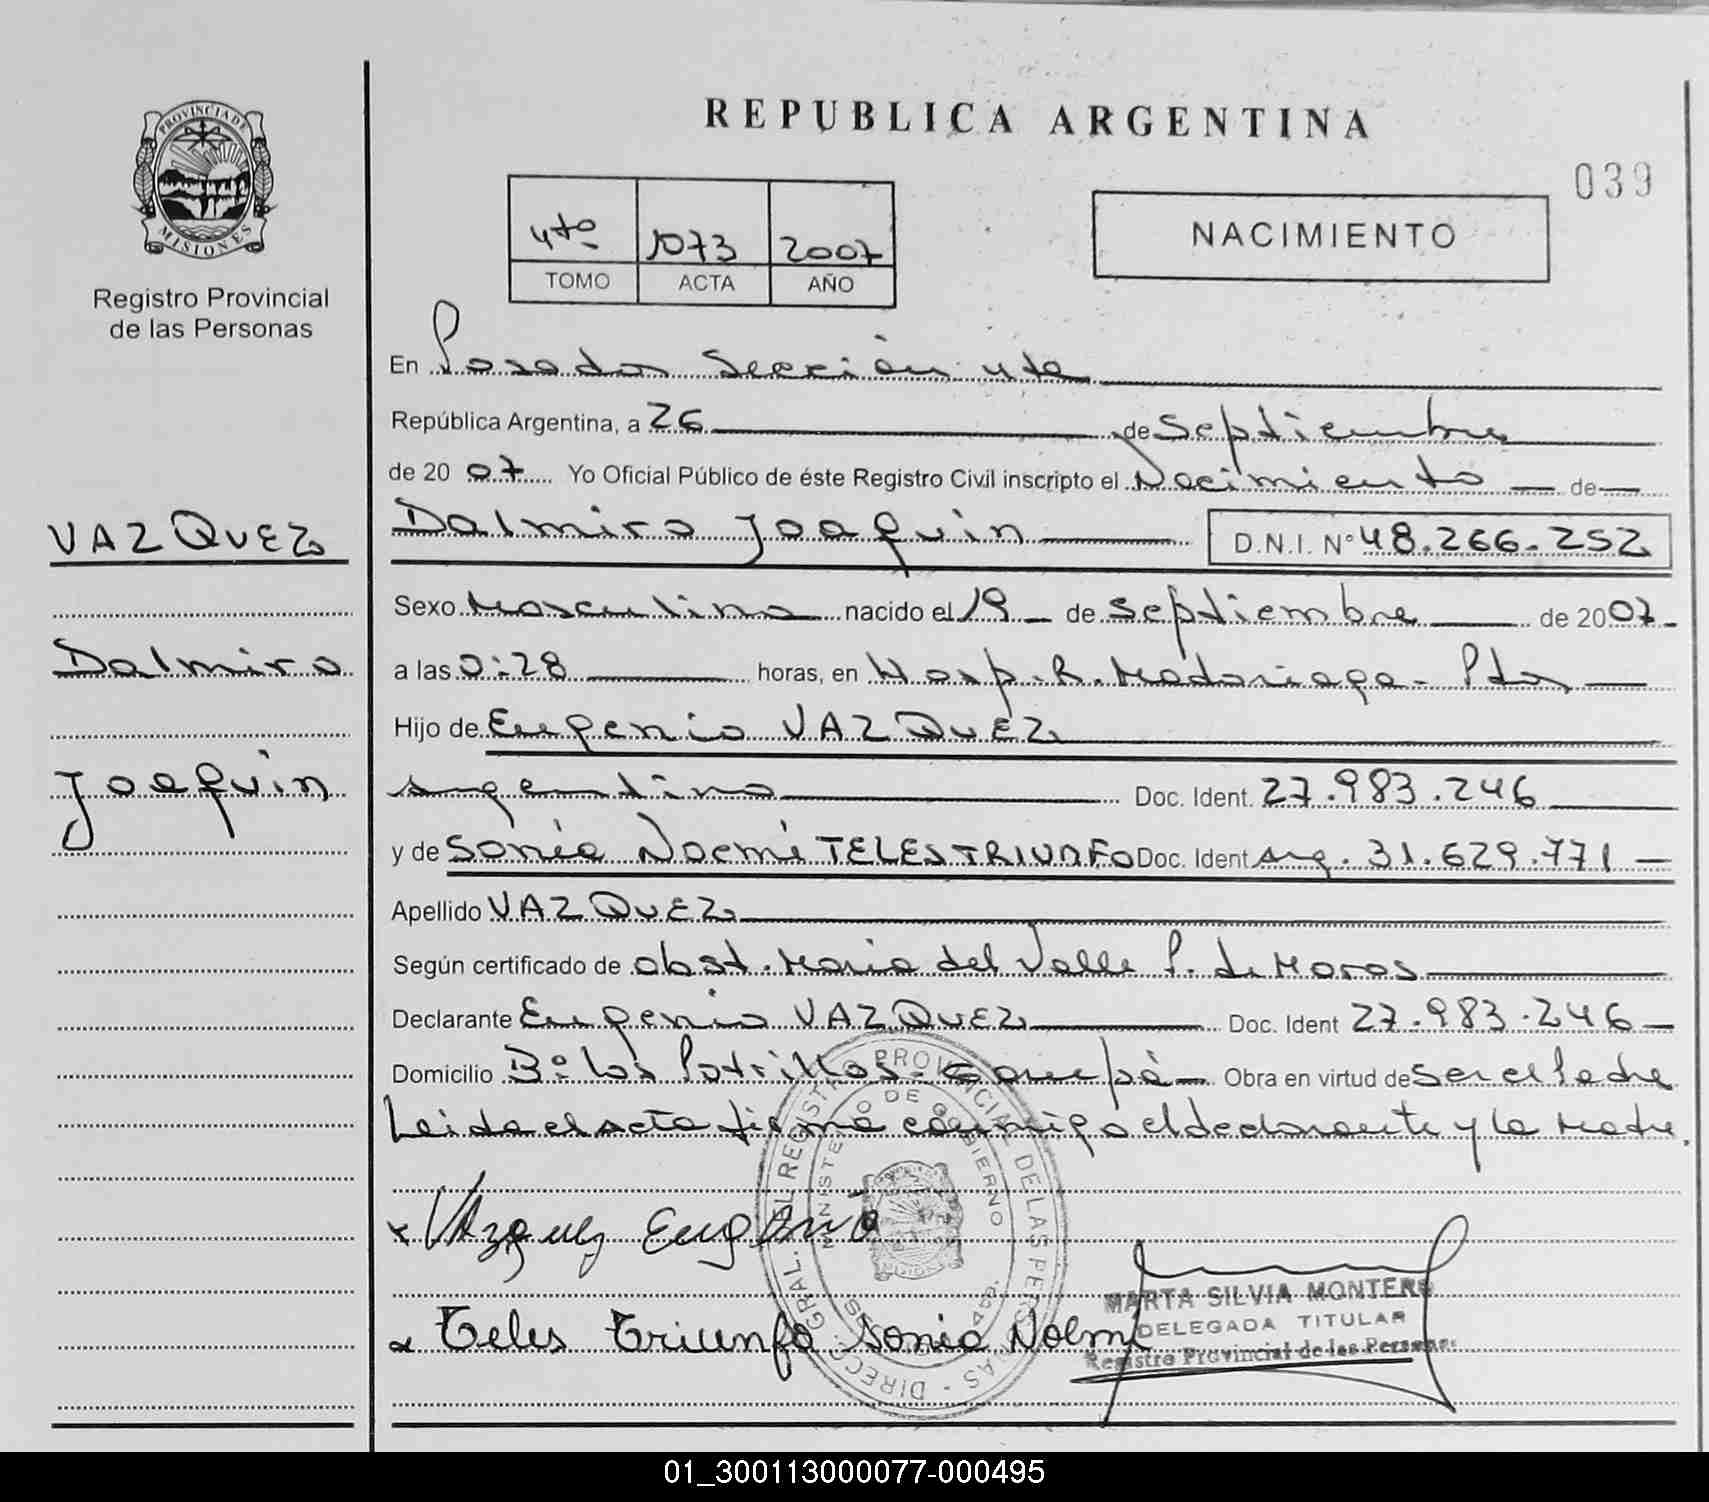 REPUBLICA ARGENTINA
039
PROVINCIA DE
MISIONES
Registro Provincial
de las Personas
4to 1073 2007
TOMO ACTA AÑO
NACIMIENTO
En Posadas Sección 4ta
República Argentina, a 26 de Septiembre
de 20 07 Yo Oficial Público de éste Registro Civil inscripto el Nacimiento de
VAZQUEZ
Dalmiro Joaquin D.N.I. Nº 48.266.252
Sexo Masculino nacido el 19 de Septiembre de 2007
Dalmiro
a las 0:28 horas, en Hosp. R. Madariaga - Pdas
Hijo de Eugenio VAZQUEZ
Joaquin
argentino Doc. Ident. 27.983.246
y de Sonia Noemi TELES TRIUNFO Doc. Ident Arg. 31.629.771
Apellido VAZQUEZ
Según certificado de obst. Maria del Valle P. de Moras
Declarante Eugenio VAZQUEZ Doc. Ident 27.983.246
Domicilio Bº Los Potrillos - Garupá Obra en virtud de Ser el Padre
Leida el acta firma conmigo el declarante y la Madre.
x Vazquez Eugenio
x Teles Triunfo Sonia Noemi
DIRECC. GRAL. REGISTRO PROVINCIAL DE LAS PERSONAS
MINISTERIO DE GOBIERNO
MARTA SILVIA MONTERO
DELEGADA TITULAR
Registro Provincial de las Personas
01_300113000077-000495